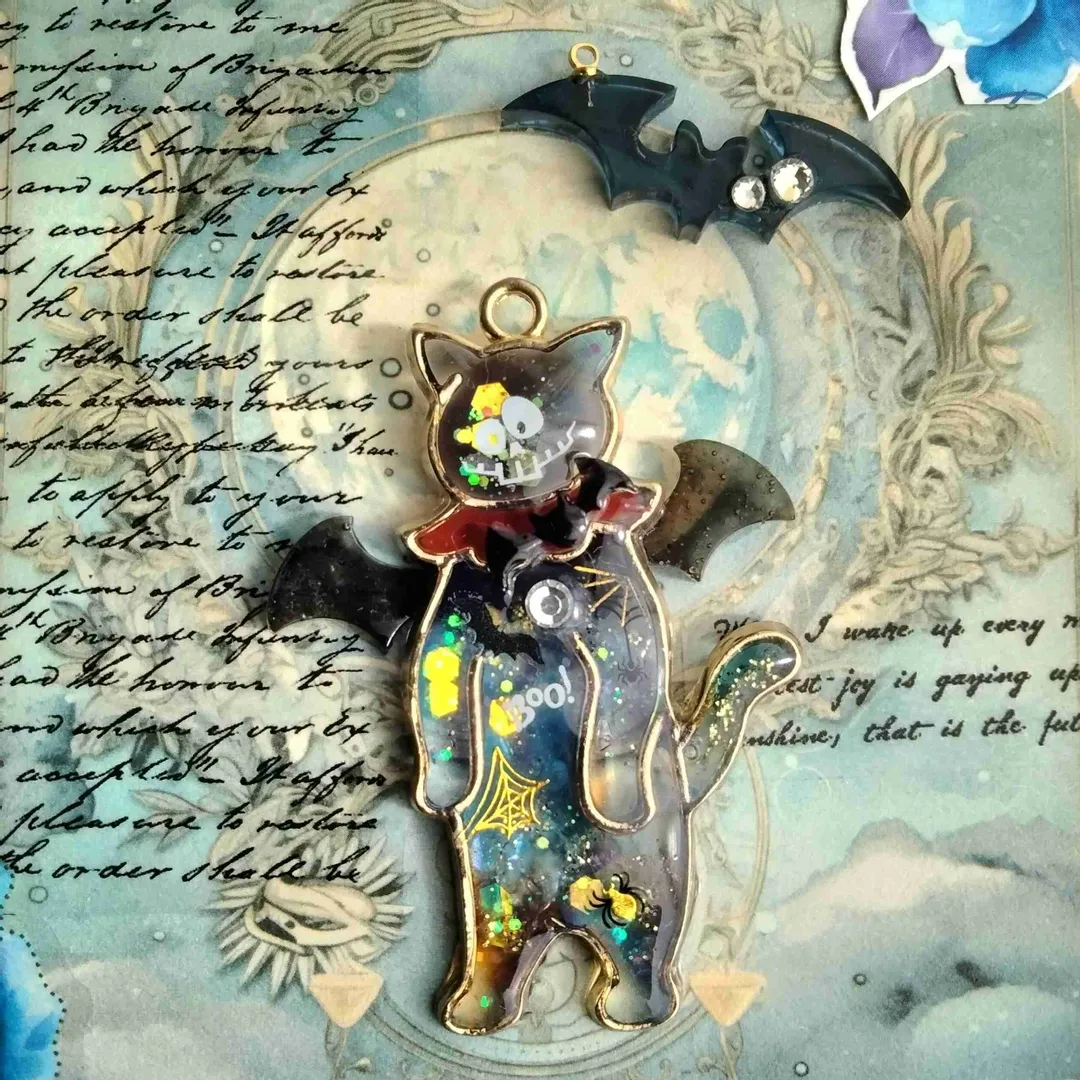 ey to restore to me
mission of Brigadier
4th Brigade Infantry
I had the honour to
, and which your Ex
ey accepted"_ It affords
at pleasure to restore
the order shall be
to yours
to apply to your
to restore to
mission of Bri
Brigade Infantry
ad the honour to
and which your Ex
accepted"_ It affords
pleasure to restore
he order shall be
I wake up every m
est joy is gaying up
nshine, that is the ful
BOO!